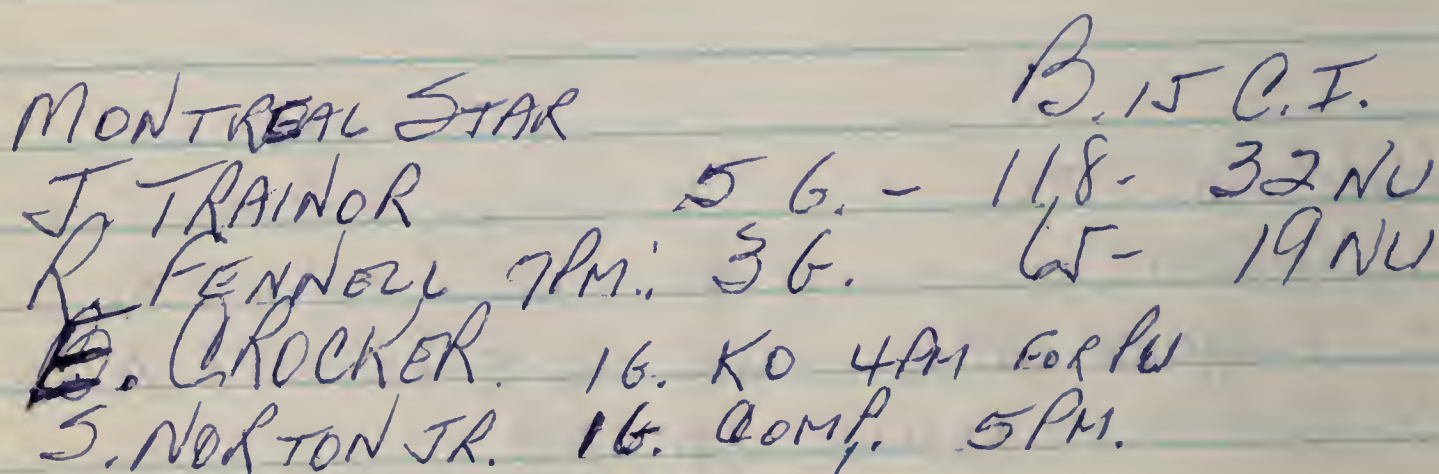 MONTREAL STAR B. 15 C.I.
J. TRAINOR 5 G. - 118- 32 NU
R. FENNELL 7PM. 3 G. 65- 19 NU
E. CROCKER. 1G. KO 4PM FOR PU
S. NORTON JR. 1G. COMP. 5PM.